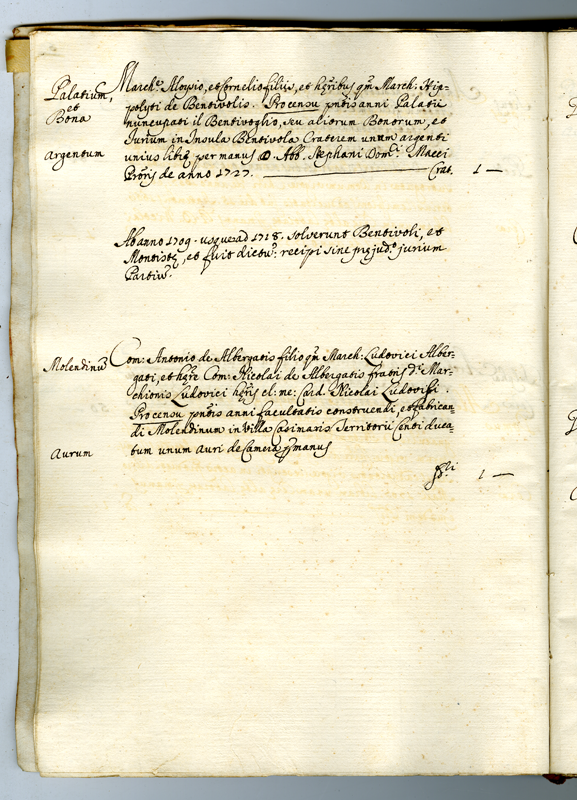 Palatium,
et
Bona
Argentum
March: Aloysio, et Cornelio filiis, et hęribus qm̃ March: Hip-
polyti de Bentivolis. Pro censu pntis anni Palatii
nuncupati il Bentivoglio, seu aliorum Bonorum, et
Iurium in Insula Bentivola Craterem unum argenti
unius librę per manus D. Abb. Stephani Dom.ci Macci
Prõris de anno 1727. Crat. 1 —
Ab anno 1709. usque ad 1718. solverunt Bentivoli, et
et fuit dictu: recipi sine pręjud.o jurium
Partiu.
Molendinũ
Aurum
Com: Antonio de Albergatis filio qm̃ March: Ludovici Alber-
gati, et hęre Com: Nicolai de Albergatis fratris d: Mar-
chionis Ludovici hęris cl: me: Card. Nicolai Ludovisi.
Pro censu pntis anni facultatis construendi, et fabrican-
di Molendinum in Villa Casimaris Territorii Centi duca-
tum unum auri de Camera p manus
1 —